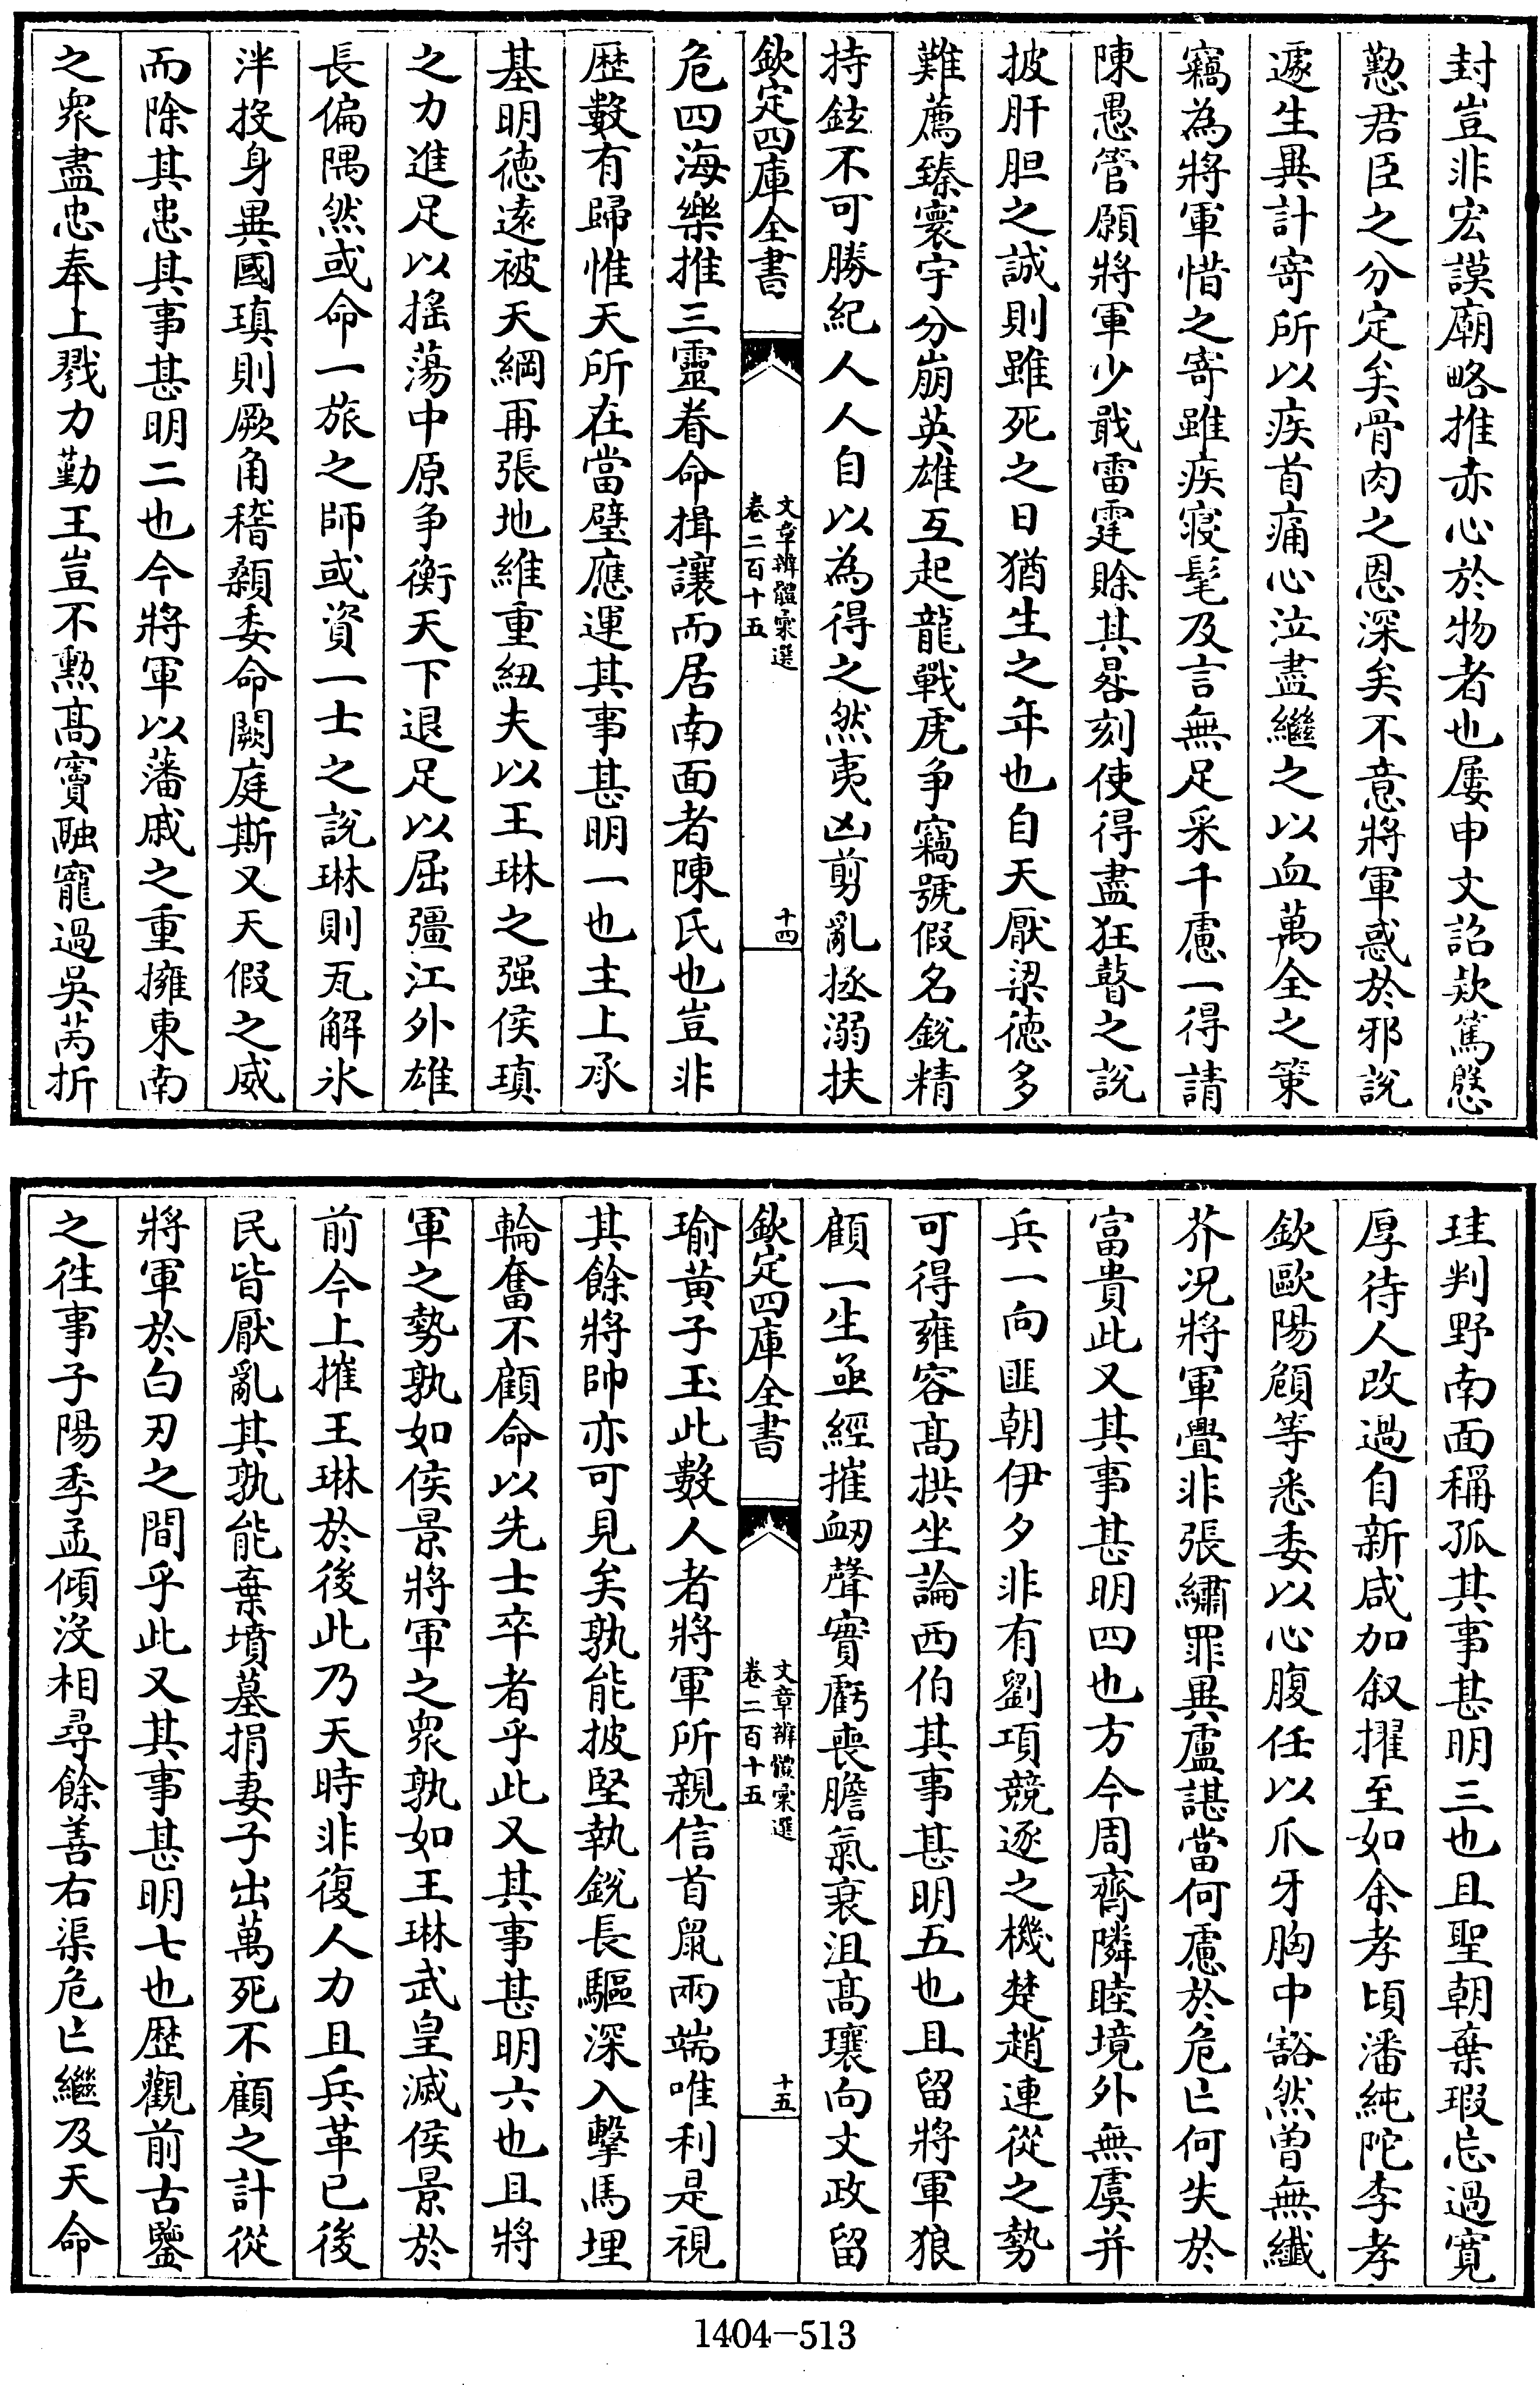 封豈非宏謨廟略推赤心於物者也屢申文詔欵篤慇
懃君臣之分定矣骨肉之恩深矣不意將軍惑於邪說
遽生異計寄所以疾首痛心泣盡繼之以血萬全之策
竊為將軍惜之寄雖疾寢髦及言無足采千慮一得請
陳愚管願將軍少戢雷霆賒其晷刻使得盡狂瞽之說
披肝胆之誠則雖死之日猶生之年也自天厭梁徳多
難薦臻寰宇分崩英雄互起龍戰虎争竊號假名銳精
持鉉不可勝紀人人自以為得之然夷凶剪亂拯溺扶
欽定四庫全書
文章辨體彚選
卷二百十五
十四
危四海樂推三靈眷命揖讓而居南面者陳氏也豈非
歴數有歸惟天所在當璧應運其事甚明一也主上承
基明徳逺被天綱再張地維重紐夫以王琳之强侯瑱
之力進足以揺蕩中原争衡天下退足以屈彊江外雄
長偏隅然或命一旅之師或資一士之說琳則瓦解氷
泮投身異國瑱則厥角稽顙委命闕庭斯又天假之威
而除其患其事甚明二也今將軍以藩戚之重擁東南
之衆盡忠奉上戮力勤王豈不勲髙竇融寵過吳芮折
珪判野南面稱孤其事甚明三也且聖朝棄瑕忘過寛
厚待人改過自新咸加叙擢至如余孝頃潘純陀李孝
欽歐陽頠等悉委以心腹任以爪牙胸中豁然曾無纎
芥况將軍釁非張繡罪異盧諶當何慮於危亡何失於
富貴此又其事甚明四也方今周齊隣睦境外無虞并
兵一向匪朝伊夕非有劉項競逐之機楚趙連從之勢
可得雍容髙拱坐論西伯其事甚明五也且留將軍狼
顧一生亟經摧衂聲實虧喪膽氣衰沮髙瓌向文政留
欽定四庫全書
文章辨體彚選
卷二百十五
十五
瑜黄子玉此數人者將軍所親信首鼠兩端唯利是視
其餘將帥亦可見矣孰能披堅執銳長驅深入擊馬埋
輪奮不顧命以先士卒者乎此又其事甚明六也且將
軍之勢孰如侯景將軍之衆孰如王琳武皇滅侯景於
前今上摧王琳於後此乃天時非復人力且兵革已後
民皆厭亂其孰能棄墳墓捐妻子出萬死不顧之計從
將軍於白刃之間乎此又其事甚明七也歴觀前古鑒
之徃事子陽季孟傾沒相尋餘善右渠危亡繼及天命
1404-513